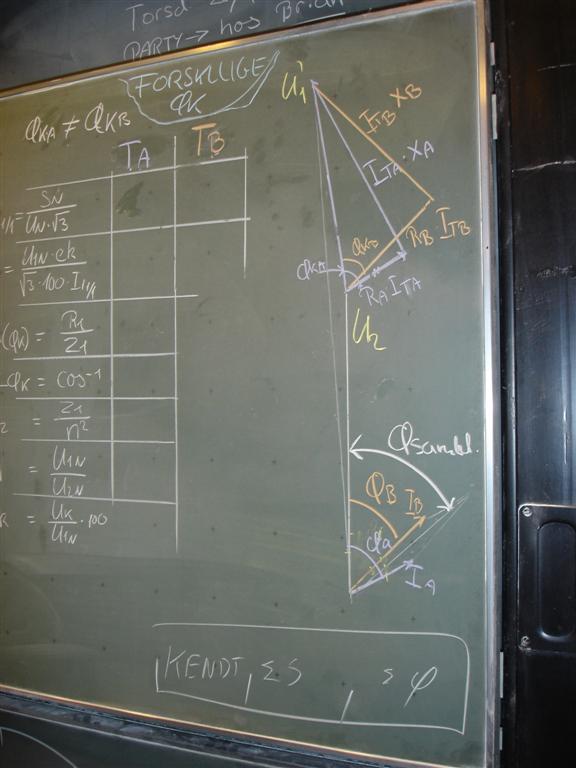 Torsd
PARTY → hos Brian
FORSKLLIGE
φK
φKA ≠ φKB
TA TB
= SN / UN·√3
= U1N·ek / √3·100·I1
(φK) = RK / Z1
φK = cos⁻¹
= Z1 / n²
= U1N / U2N
= UK / U1N · 100
U1'
ITB XB
ITA · XA
RB ITB
φKA
φKB
RA ITA
U2
φsambl.
φB
IB
φa
IA
KENDT, ΣS , Σφ